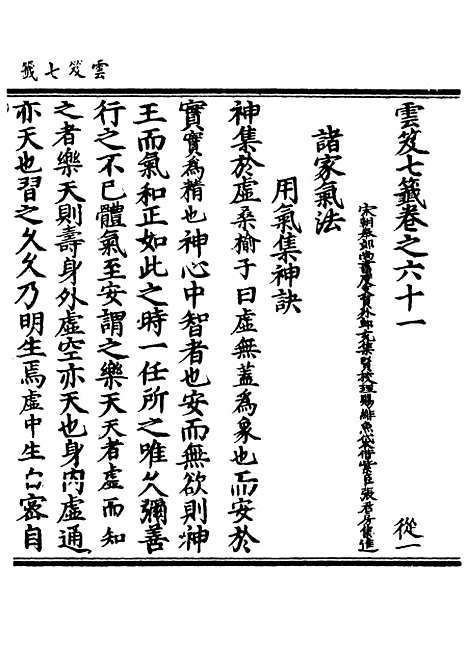 雲笈七籤
雲笈七籤卷之六十一 從一
宋朝奉郎尚書度支員外郎充集賢校理賜緋魚袋借紫臣張君房集進
諸家氣法
用氣集神訣
神集於虛桑榆子曰虛無蓋為象也而安於
實實為精也神心中智者也安而無欲則神
王而氣和正如此之時一任所之唯久彌善
行之不已體氣至安謂之樂天天者虛而知
之者樂天則壽身外虛空亦天也身內虛通
亦天也習之久久乃明生焉虛中生白密自